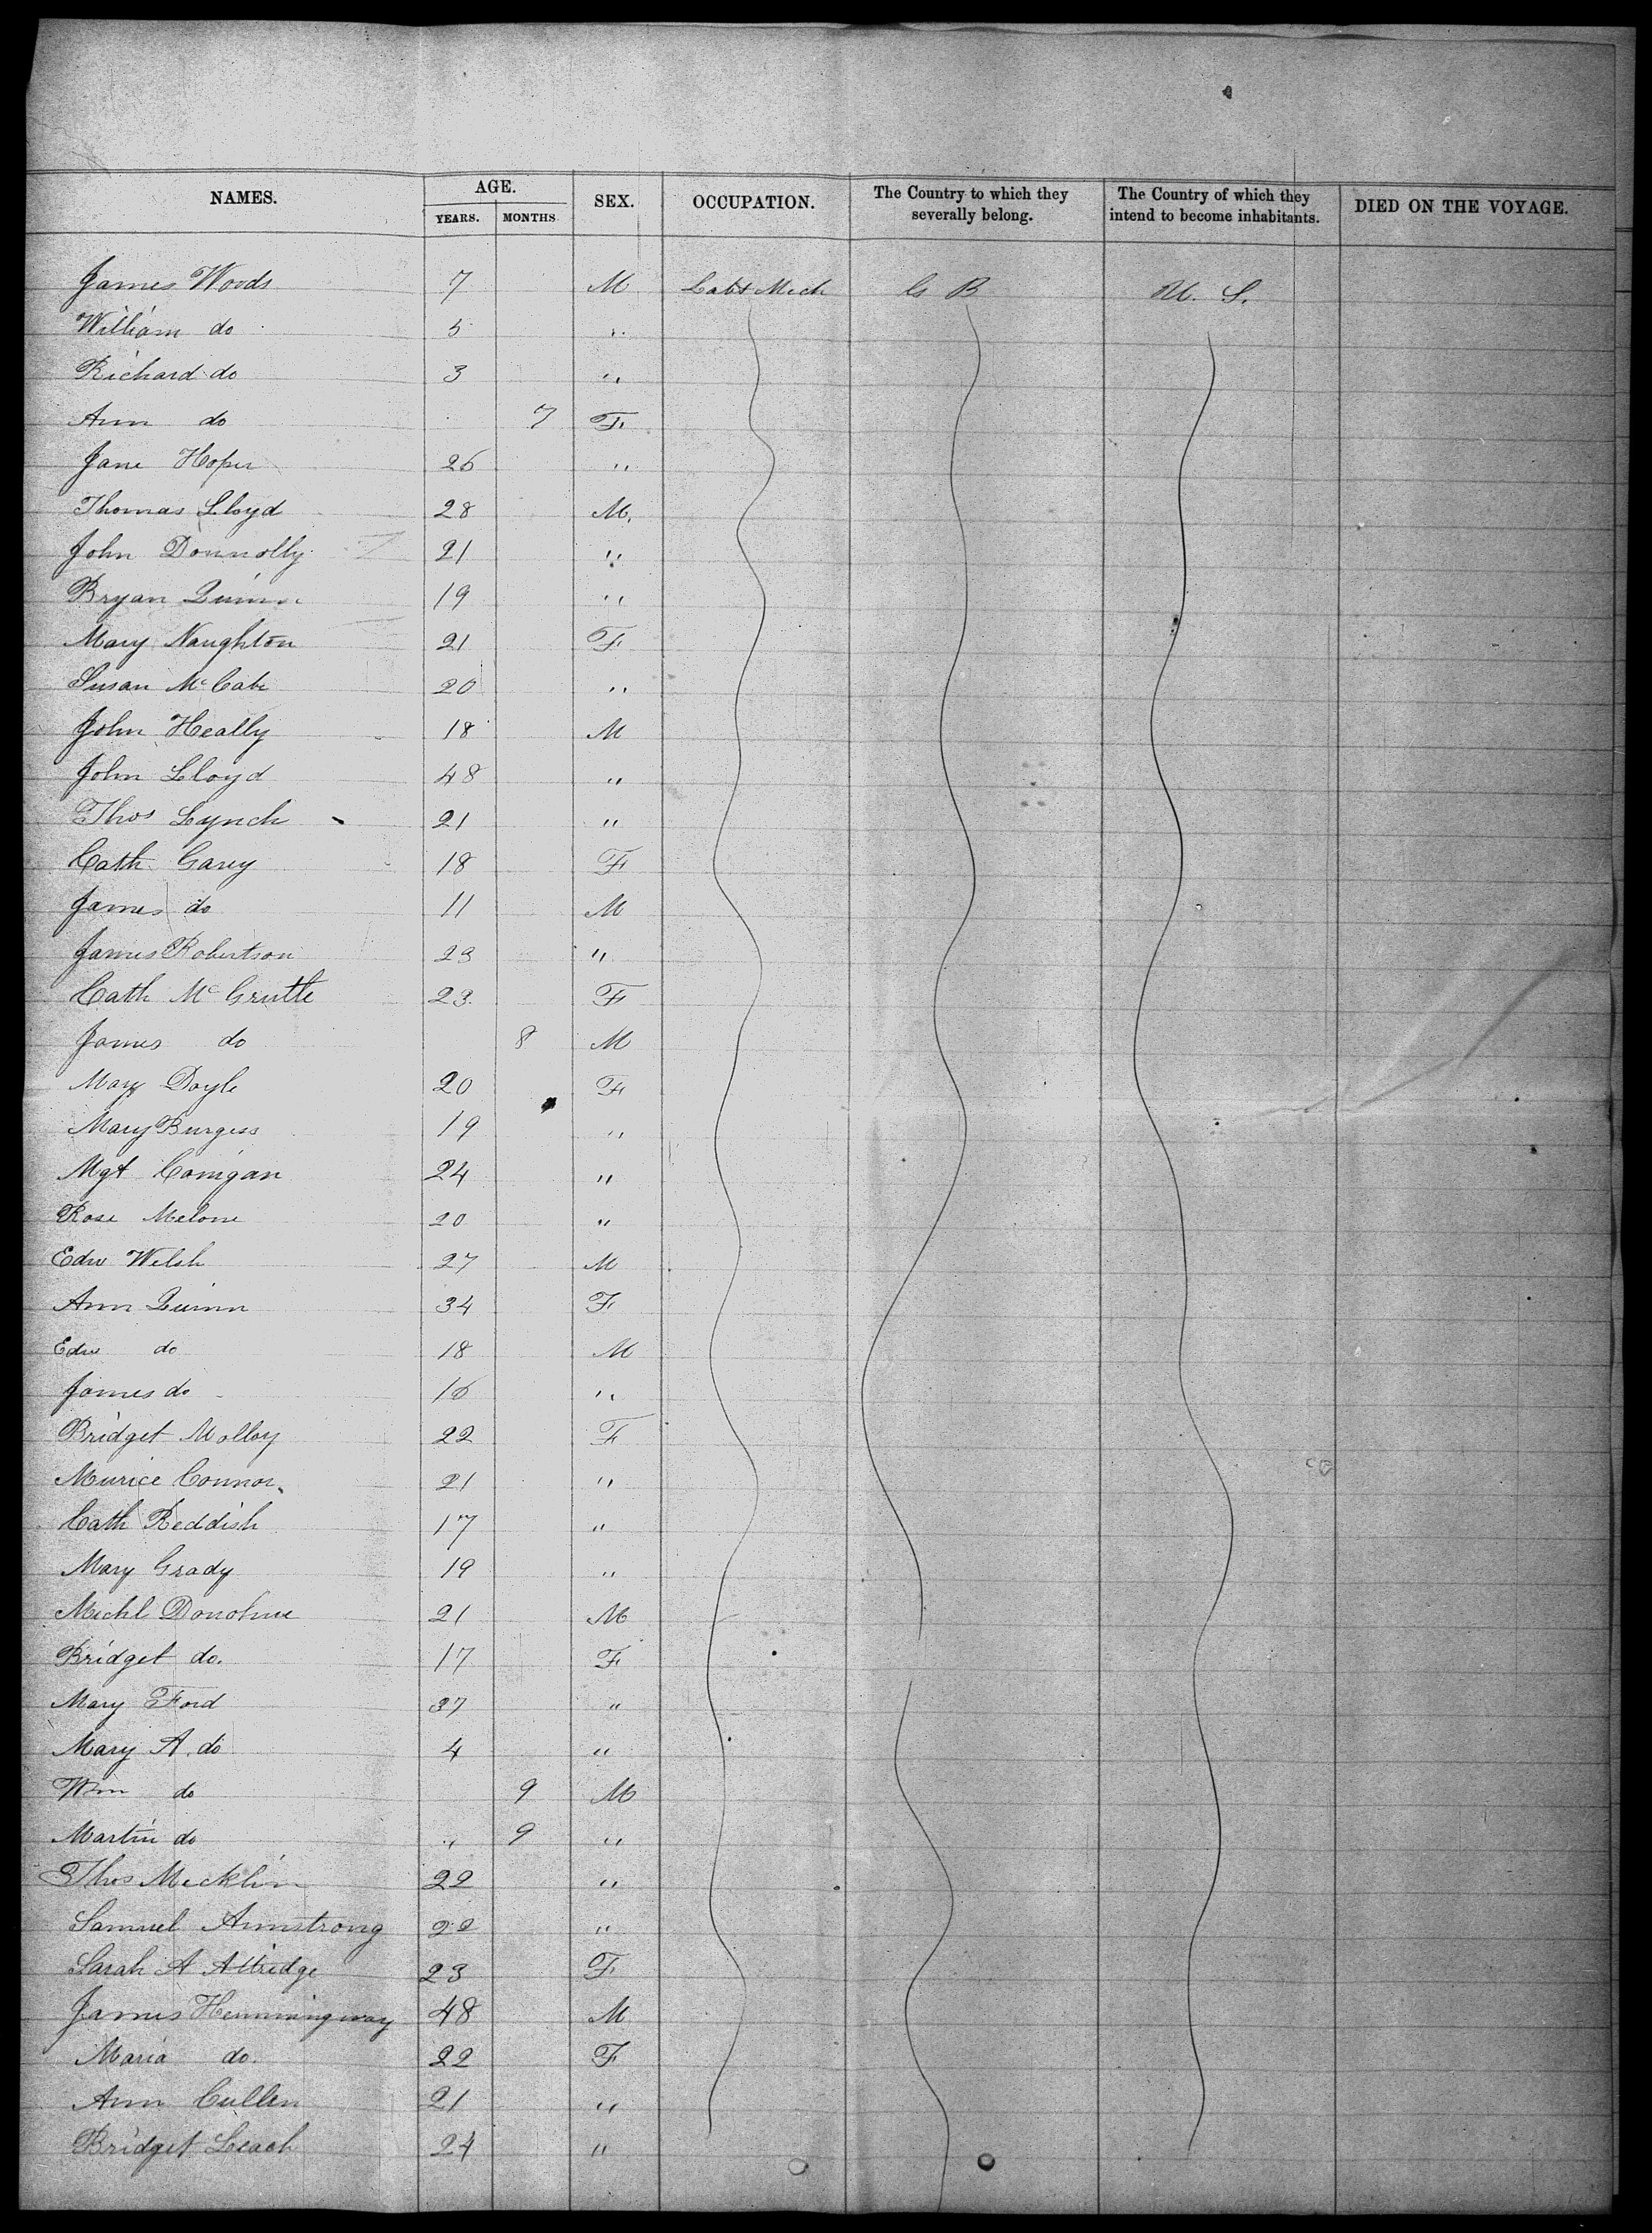 NAMES. AGE. YEARS. MONTHS SEX. OCCUPATION. The Country to which they severally belong. The Country of which they intend to become inhabitants. DIED ON THE VOYAGE.
James Woods 7 M Labs Mech G B U. S.
William do 5 "
Richard do 3 "
Ann do 7 F
Jane Hoper 26 "
Thomas Lloyd 28 M
John Donnolly 21 "
Bryan Quinn 19 "
Mary Naughton 21 F
Susan McCabe 20 "
John Heally 18 M
John Lloyd 48 "
Thos Lynch 21 "
Cath Garey 18 F
James do 11 M
James Robertson 23 "
Cath McGrutte 23 F
James do 8 M
Mary Doyle 20 F
Mary Burgess 19 "
Mgt Corrigan 24 "
Rose Melone 20 "
Edw Welsh 27 M
Ann Quinn 34 F
Edw do 18 M
James do 16 "
Bridget Molloy 22 F
Murice Connor 21 "
Cath Reddish 17 "
Mary Grady 19 "
Michl Donohue 21 M
Bridget do. 17 F
Mary Ford 37 "
Mary A. do 4 "
Wm do 9 M
Martin do " 9 "
Thos Mecklin 22 "
Samuel Armstrong 22 "
Sarah A Attridge 23 F
James Hemmingway 48 M
Maria do. 22 F
Ann Cullen 21 "
Bridget Leach 24 "